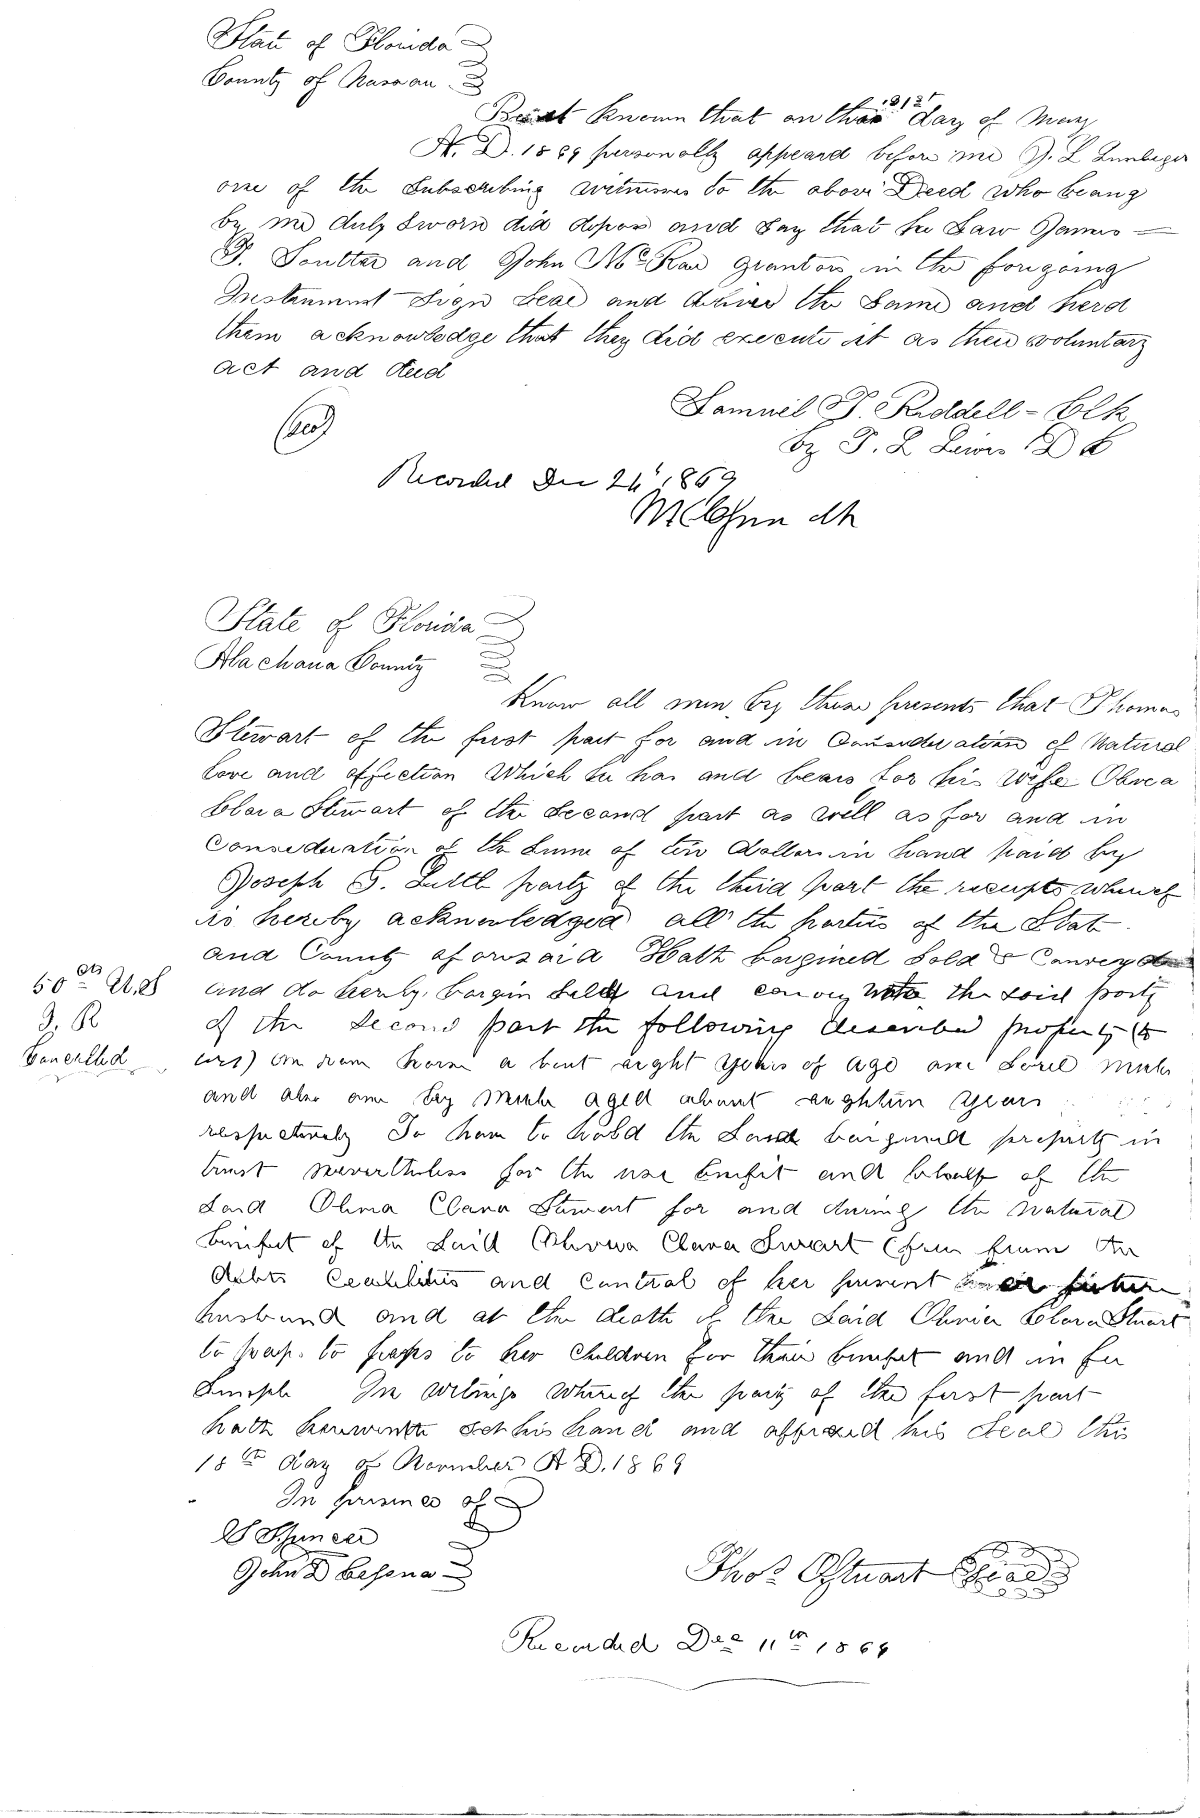 State of Florida
County of Nassau
Be it known that on this 31st day of May
A. D. 1869 personally appeard before me J. L
one of the Subscribing witnesses to the above Deed who being
by me duly Sworn did depose and Say that he Saw James
T. Soutter and John McRae grantors in the foregoing
Instrument Sign Seal and deliver the Same and herd
them acknowledge that they did execute it as their voluntary
act and deed
Samuel T. Riddell - Clk
by T. L Lewis D C
Recorded Dec 24 1869
State of Florida
Alachaua County
Know all men by these presents that Thomas
Stewart of the first part for and in Consideration of Natural
love and affection Which he has and bears for his Wife Olivea
Clara Stewart of the Second part as well as for and in
Consideration of the Sume of ten dollars in hand paid by
Joseph S. party of the third part the receipts whereof
is hereby acknowledged all the parties of the State
and County aforesaid Hath bargined Sold & Conveyd
and do herby bargin Sell and convey unto the said party
of the Second part the following described property (to
wit) one horse a bout aight years of age one Sorel Mule
and also one bay Mule aged about aughteen years
respectively To have to hold the Said bargined property in
trust nevertheless for the use benifit and behalf of the
Said Olivia Clara Stewart for and during the Natural
benifit of the Said Olivia Clara Stuart (free from the
debts Lealilities and Control of her present or future
husband and at the death of the Said Olivia Clara Stuart
to pass to her Children for their benifit and in fee
Simple In witings whereof the party of the first part
hath hereunto set his hand and affixed his Seal this
18th day of November A D. 1869
In presence of
John D Cessna
Thos O Stuart Seal
Recorded Dec 11th 1869
50 cts U.S
I. R
Cancelled